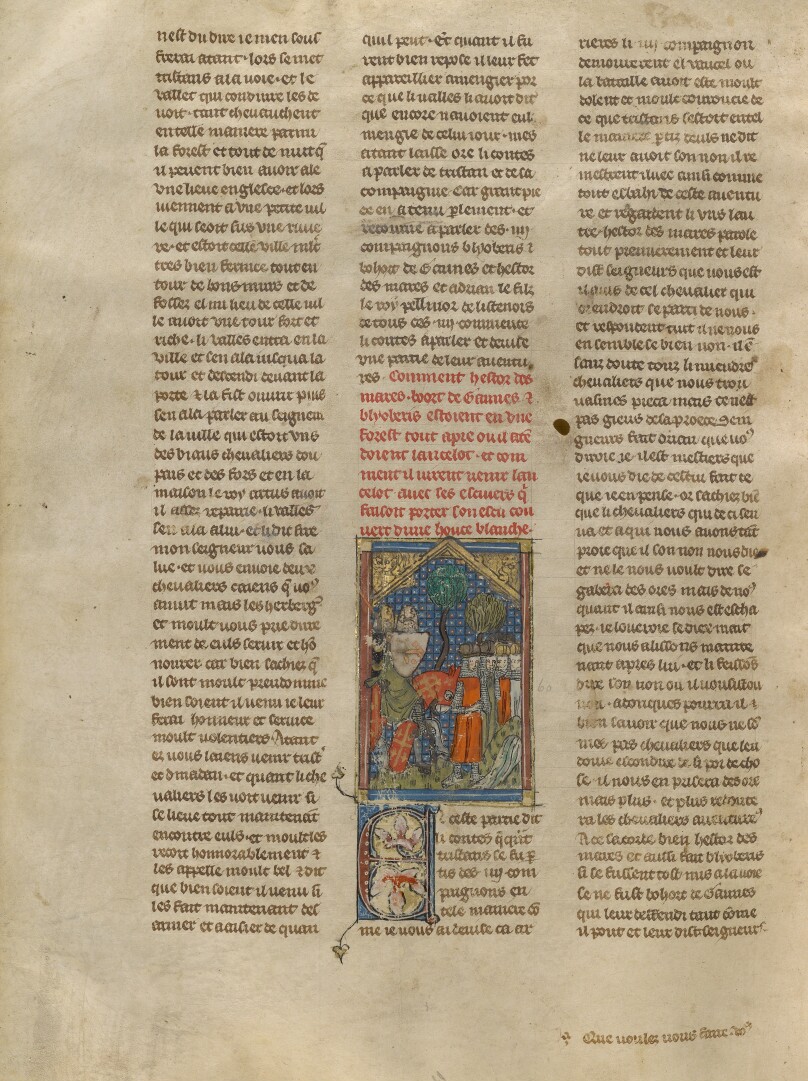 nest du dire ie men souf
ferrai atant. lors se met
tristans a la uoie. et le
uallet qui conduire les de
uoit. tant cheuauchent
en telle maniere parmi
la forest et tout de nuit q̄
il peuent bien auoir ale
vne lieue englesce. et lors
uiennent a vne petite uil
le qui seoit sus vne riuie
re. et estoit celle ville mlt
tres bien fermee tout en
tour de bons murs et de
fossez el mi lieu de celle uil
le auoit vne tour fort et
riche. li valles entra en la
ville et sen ala iusqua la
tour et descendi deuant la
porte ⁊ la fist ouurir puis
sen ala parler au seigneur
de la uille qui estoit vns
des biaus cheualiers dou
pais et des fors et en la
maison le roy artus auoit
il assez repairie. li valles
sen ala a lui. et li dit sire
mon seigneur uous sa
lue. et uous enuoie deus
cheualiers caiens q̄ uoꝰ
anuit mais les herbergꝰ
et moult uous prie dure
ment de euls seruir et hō
nourer car bien sachiez q̄
il sont moult preudomme
bien soient il uenu ie leur
ferai honneur et seruice
moult uolentiers Atant
ez uous laiens uenir trist
et dinadan. et quant li che
ualiers les voit uenir si
se lieue tout maintenant
encontre euls. et moult les
recoit honnorablement ⁊
les appelle moult bel ⁊ dit
que bien soient il uenu si
les fait maintenant des
armer et aaisier de quan
quil peut. Et quant il fu
rent bien repose il leur fet
appareillier a mengier por
ce que li valles li auoit dit
que encore nauoient eul
mengie de celui iour. mes
atant laisse ore li contes
a parler de tristan et de sa
compaignie. Car grant pie
ce en a tenu plement. et
retourne a parler des. iiij
compaignons blyoberis ⁊
bohort de Gaunes et hestor
des mares et adrian le filz
le roy pellinor de listenois
de tous ces. iiij commente
li contes a parler et deuise
vne partie de leur auentu
res. Comment hestor des
mares. boort de Gaunes ⁊
blyoberis estoient en vne
forest tout apie ou il atē
doient lancelot. et com
ment il uirent uenir lan
celot auec ses escuiers q̄
faisoit porter son escu cou
uert dune houce blanche.
E n ceste partie dit
li contes q̄ qn̄t
tristans se fu p̄
tis des iiij com
paignons en
tele maniere cō
me ie uous ai deuise ca ar
rieres li iiij compaignon
demourerent el vaucel ou
la bataille auoit este moult
dolent et moult courroucie de
ce que tristans sestoit en tel
le maniere partis deuls ne dit
ne leur auoit son non il re
mestrent iluec ainsi comme
tout esbahi de ceste auentu
re et regardent li vns lau
tre. hestor des mares parole
tout premierement et leur
dist seigneurs que uous est
il auis de cel cheualier qui
orendroit se parti de nous.
et respondent tuit il ne nous
en semble se bien non. il ē
sanz doute touz li miendres
cheualiers que nous trou
uasmes pieca mais ce nest
pas gieus de sa proece Sein
gneurs fait drian que uoꝰ
diroie ie. il est mestiers que
ie uous die de cestui fait ce
que ie en pense. or sachiez biē
que li cheualiers qui de ci sen
ua et a qui nous auons tāt
proie que il son non nous dist
et ne le nous uoult dire se
gabera des ores mais de noꝰ
quant il ainsi nous est escha
pez. ie loueroie se dieu mait
que nous alissons mainte
nant apres lui. et li feissōs
dire son non ou il uousist ou
non. adonques pourra il
bien sauoir que nous ne sō
mes pas cheualiers que len
doiue escondire de si poi de cho
se. il nous en prisera des ore
mais plus. et plus redoute
ra les cheualiers auentureꝰ
A ce sacorde bien hestor des
mares et aussi fait blyoberis
si se fussent tost mis a la uoie
se ne fust bohort de Gaunes
qui leur deffendi tant cōme
il pout et leur dist seigneurs
Que uoulez uous faire